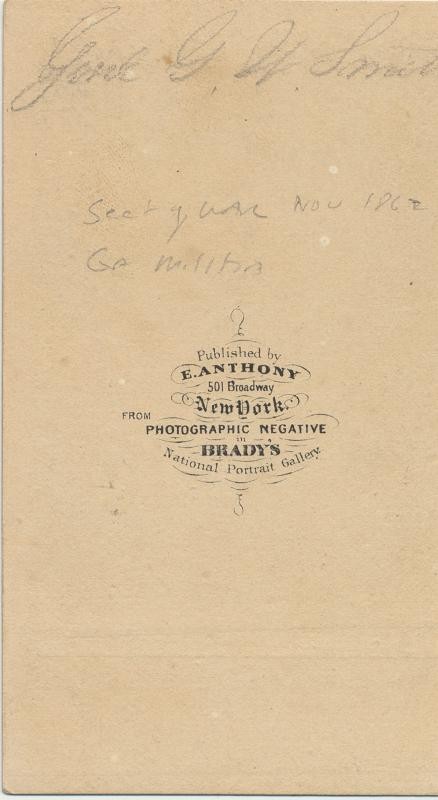 Genl G W Smit
Sec't of War Nov 1862
Ga Militia
Published by
E. ANTHONY
501 Broadway
New York.
FROM
PHOTOGRAPHIC NEGATIVE
in
BRADY'S
National Portrait Gallery.